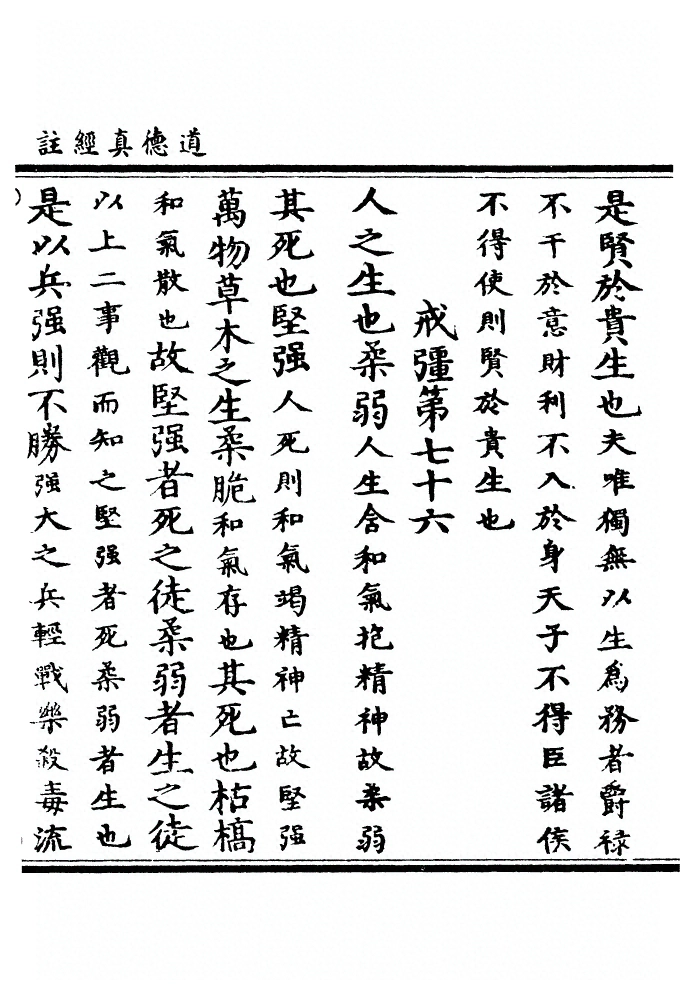 道德真經註
是賢於貴生也夫唯獨無以生為務者爵祿
不干於意財利不入於身天子不得臣諸侯
不得使則賢於貴生也
戒彊第七十六
人之生也柔弱人生含和氣抱精神故柔弱
其死也堅强人死則和氣竭精神亡故堅强
萬物草木之生柔脆和氣存也其死也枯槁
和氣散也故堅强者死之徒柔弱者生之徒
以上二事觀而知之堅强者死柔弱者生也
是以兵强則不勝强大之兵輕戰樂殺毒流